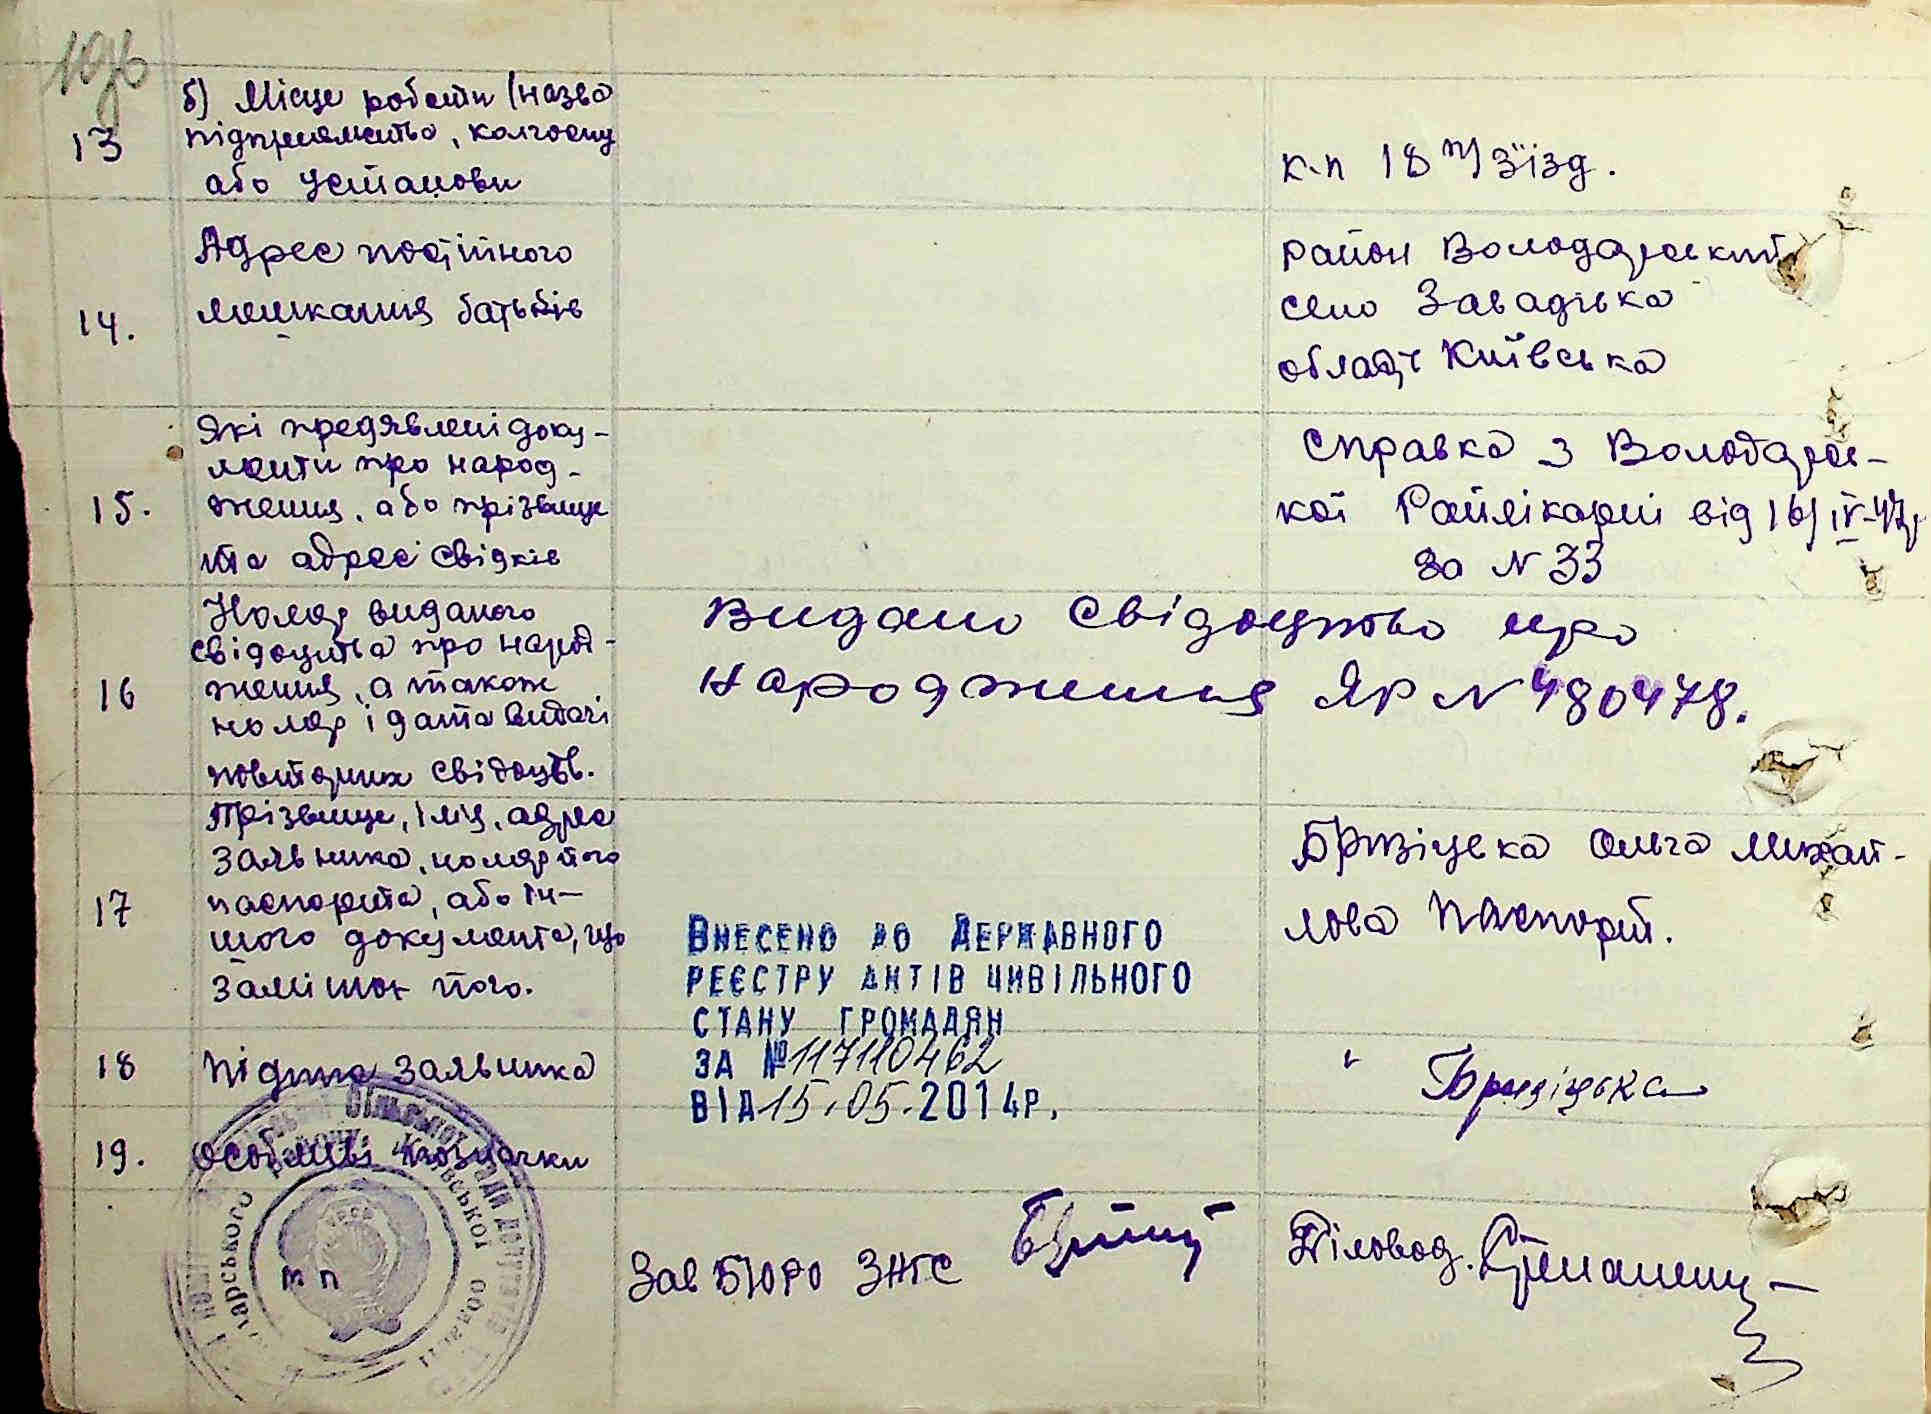 13
б) Місце роботи (назва
підприємства, колгоспу
або установи
к-п 18 п/з'їзд.
14.
Адрес постійного
мешкання батьків
район Володарський
село Завадівка
області Київська
15.
Які предявлені доку-
менти про народ-
ження, або прізвище
та адресі свідків
Справка з Володарс-
кої Райлікарні від 16/IV-47р
за N 33
16
Номер виданого
свідоцтва про народ-
ження, а також
номер і дата видачі
повторних свідоцтв.
Видано свідоцтво про
народження ЯР N 480478.
17
Прізвище, імя, адрес
заявника, номер його
паспорта, або ін-
шого документа, що
заміняє його.
Бржіцька Ольга Михай-
лова Паспорт.
ВНЕСЕНО ДО ДЕРЖАВНОГО
РЕЄСТРУ АКТІВ ЦИВІЛЬНОГО
СТАНУ ГРОМАДЯН
ЗА №117110462
ВІД 15.05.2014р.
18
Підпис заявника
19.
Особливі позначки
м п
Зав Бюро ЗАГС
Діловод.